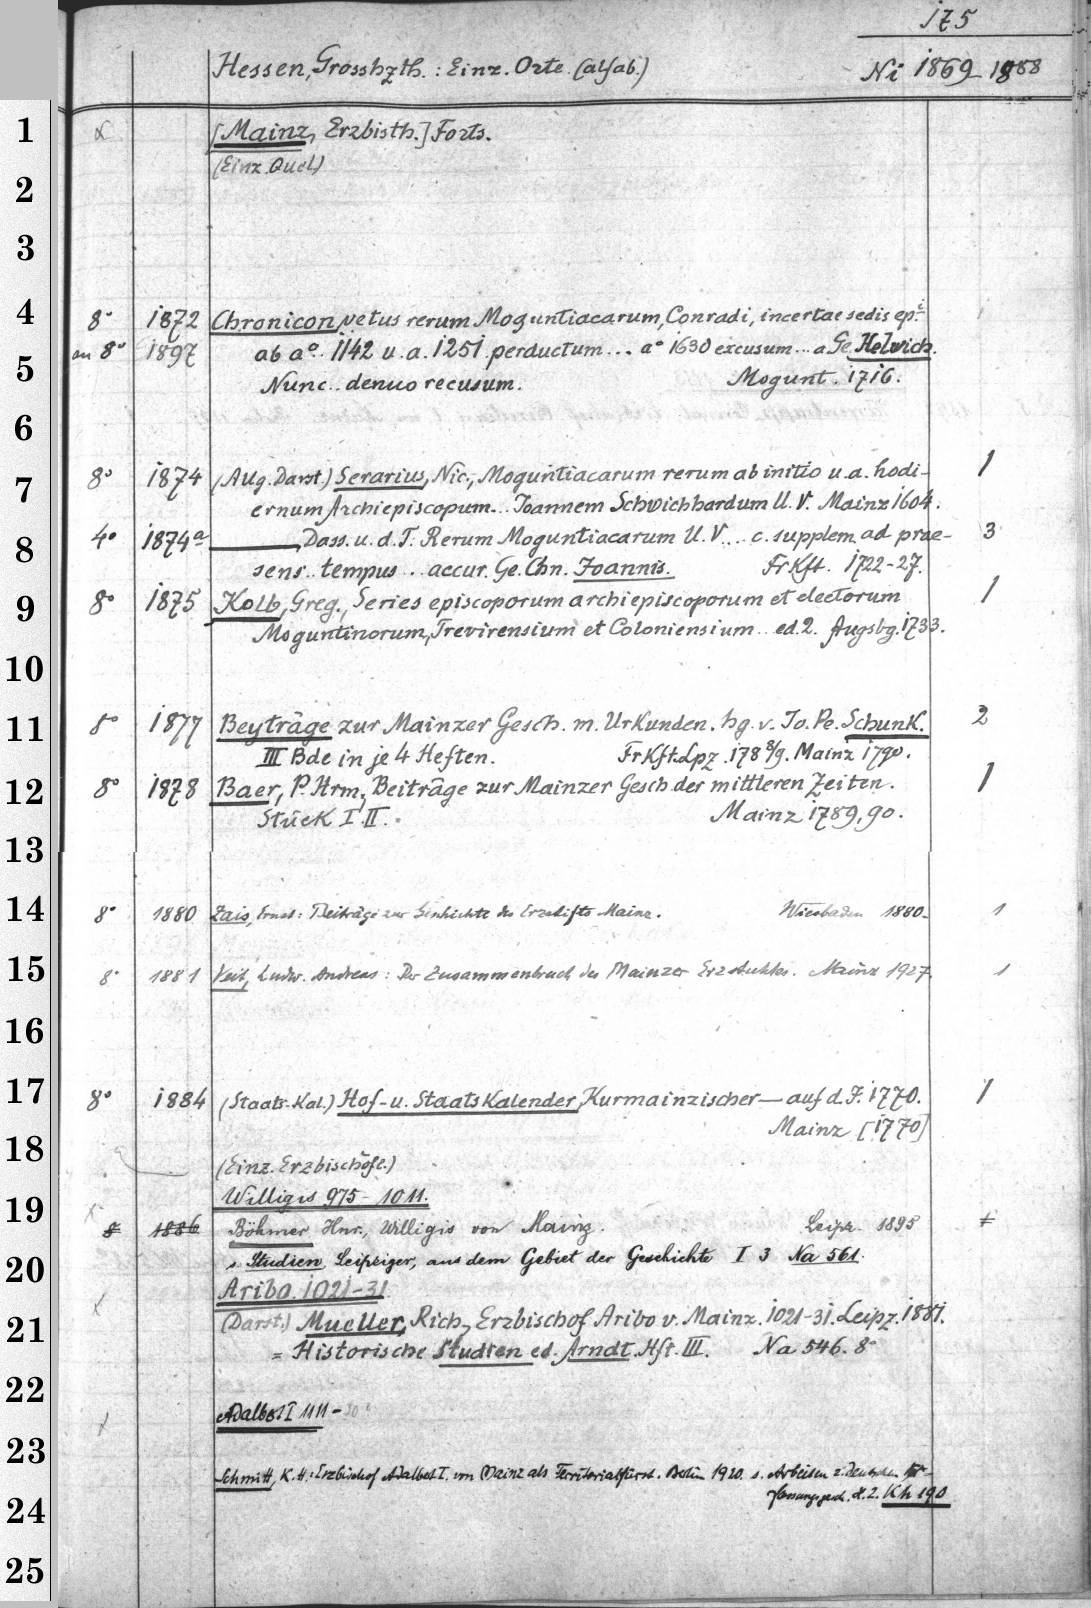 175
Hessen, Grosshzth. : Einz. Orte. (alfab.) Ni 1869-1888
1 [Mainz, Erzbisth.] Forts.
(Einz. Quel.)
2
3
4 8° 1872 Chronicon vetus rerum Moguntiacarum, Conradi, incertae sedis epi
an 8° 1897 ab a° 1142 u. a. 1251 perductum... a° 1630 excusum... a Ge. Helwich.
5 Nunc.. denuo recusum. Mogunt. 1716.
6
7 8° 1874 (Allg. Darst.) Serarius, Nic., Moguntiacarum rerum ab initio u. a. hodi- 1
ernum Archiepiscopum... Joannem Schwichhardum U. V. Mainz 1604.
8 4° 1874a ——, Dass. u. d. T. Rerum Moguntiacarum U. V... c. supplem. ad prae- 3
sens.. tempus... accur. Ge. Chn. Joannis. Frkft. 1722-27.
9 8° 1875 Kolb, Greg., Series episcoporum archiepiscoporum et electorum 1
Moguntinorum, Trevirensium et Coloniensium.. ed. 2. Augsbg. 1733.
10
11 8° 1877 Beyträge zur Mainzer Gesch. m. Urkunden. hg. v. Jo. Pe. Schunk. 2
III Bde in je 4 Heften. Frkft. Lpz. 178 8/9. Mainz 1790.
12 8° 1878 Baer, P. Hrm., Beiträge zur Mainzer Gesch. der mittleren Zeiten. 1
Stück I. II. Mainz 1789, 90.
13
14 8° 1880 Zais, Ernst: Beiträge zur Geschichte des Erzstifts Mainz. Wiesbaden 1880. 1
15 8° 1881 Veit, Ludw. Andreas: Der Zusammenbruch des Mainzer Erzstuhles. Mainz 1927. 1
16
17 8° 1884 (Staats-Kal.) Hof- u. Staatskalender, Kurmainzischer — auf d. J. 1770. 1
Mainz [1770]
18 (Einz. Erzbischöfe.)
19 Willigis 975-1011.
8° 1886 Böhmer Hnr., Willigis von Mainz. Leipz. 1895 1
20 s. Studien, Leipziger, aus dem Gebiet der Geschichte I 3 Na 561.
Aribo. 1021-31
21 (Darst.) Mueller, Rich., Erzbischof Aribo v. Mainz. 1021-31. Leipz. 1881.
= Historische Studien ed. Arndt. Hft. III. Na 546. 8°
22 Adalbert I 1111-
23 Schmitt, K. H.: Erzbischof Adalbert I. von Mainz als Territorialfürst. Berlin 1920. s. Arbeiten z. deutschen
24 H. 2. Kh 190
25